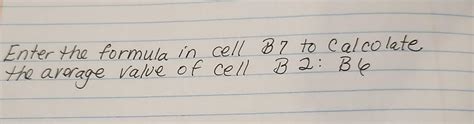 Enter the formula in cell B7 to Calcolate
the avarage value of cell B2: B6